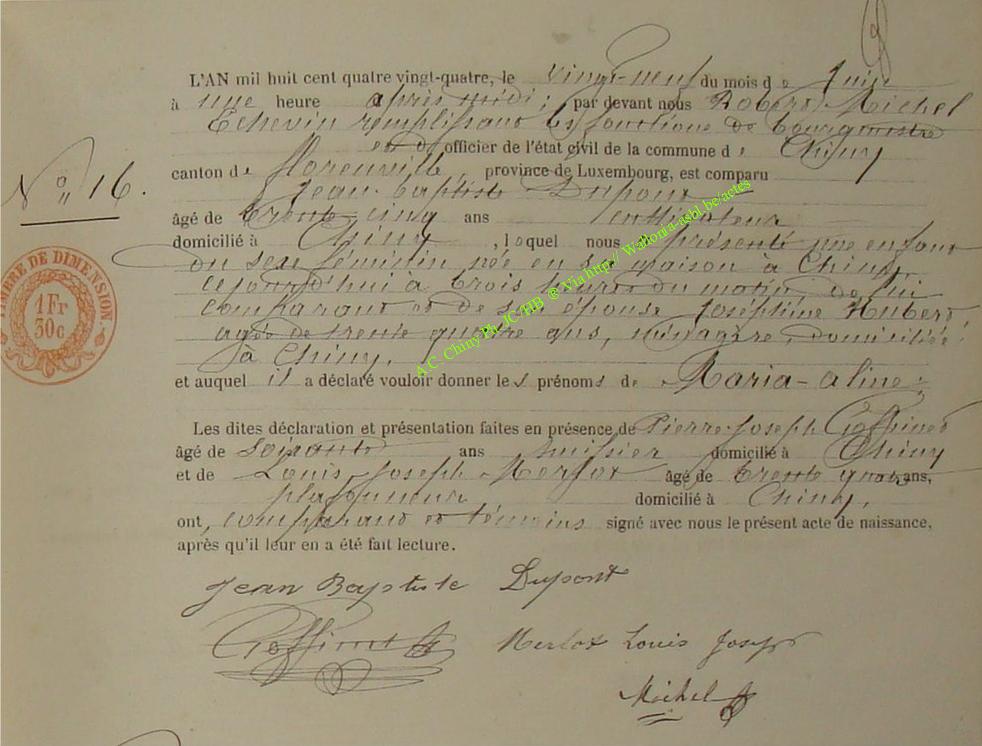 L'AN mil huit cent quatre vingt-quatre, le vingt-neuf du mois de Juin
à une heure après midi; par devant nous Robert Michel
Echevin remplissant les fonctions de bourgmestre
et officier de l'état civil de la commune de Chiny
canton de florenville, province de Luxembourg, est comparu
Jean-Baptiste Dupont
âgé de trente-cinq ans cultivateur
N° 16.
domicilié à Chiny, lequel nous a présenté une enfant
du sexe féminin née en sa maison à Chiny,
cejourd'hui à trois heures du matin, de lui
comparant et de son épouse Joséphine Hubert
agée de trente quatre ans, ménagère, domiciliée
à Chiny.
TIMBRE DE DIMENSION.
1 Fr
30c
et auquel il a déclaré vouloir donner les prénoms de Maria-aline.
Les dites déclaration et présentation faites en présence de Pierre-Joseph Goffinet
âgé de soixante ans huissier domicilié à Chiny
et de Louis-Joseph Merlot âgé de trente ans,
plafonneur domicilié à Chiny,
ont, comparant et témoins signé avec nous le présent acte de naissance,
après qu'il leur en a été fait lecture.
Jean Baptiste Dupont
Goffinet Merlot Louis Joseph
Michel
A.C. Chiny Ph. JC/HB ® Via http:// Wallonia-asbl.be/actes